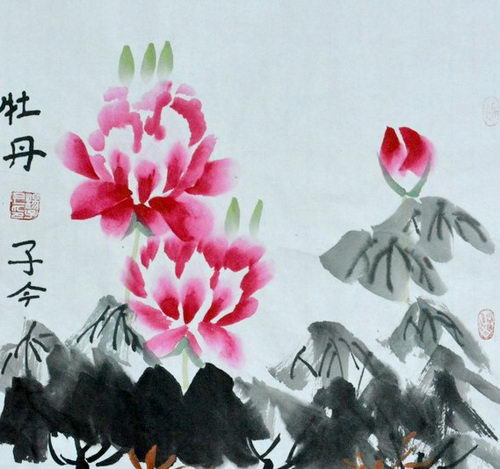 牡丹
子今